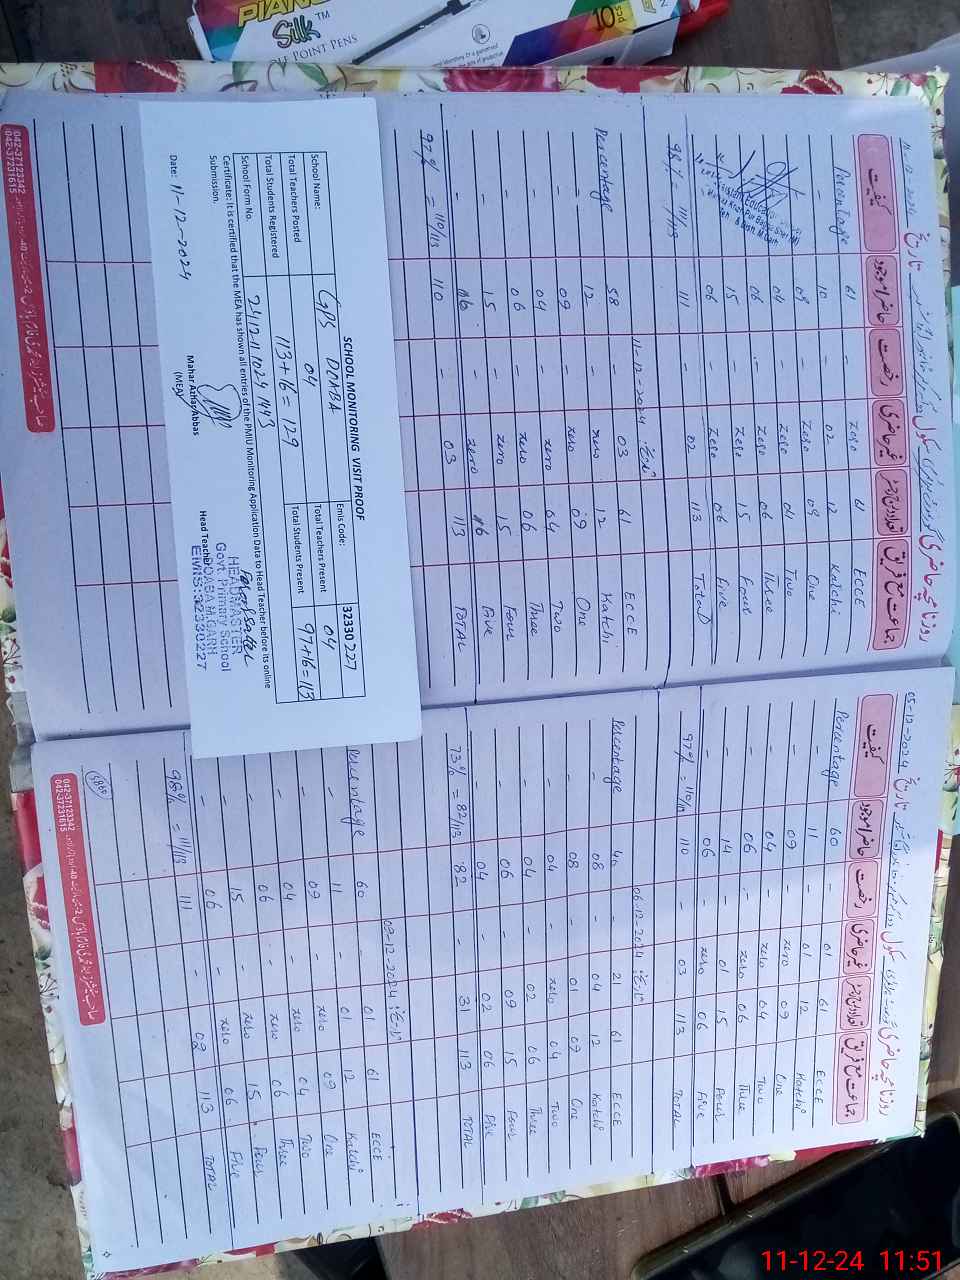 PIANO
Silk™
POINT PENS
10 pcs
11-12-2024
روزنامچہ حاضری
تاریخ
کیفیت
حاضر/موجود
رخصت
غیر حاضری
تعداد درج رجسٹر
جماعت مع فریق
Percentage 61 - zero 61 ECCE
- 10 - 02 12 Katchi
- 09 - zero 09 One
- 04 - zero 04 Two
- 06 - zero 06 Three
- 15 - zero 15 Four
- 06 - zero 06 Five
98% 111/113 111 - 02 113 Total
11-12-2024
Percentage 58 - 03 61 ECCE
- 12 - zero 12 Katchi
- 09 - zero 09 One
- 04 - zero 04 Two
- 06 - zero 06 Three
- 15 - zero 15 Four
- 06 - zero 06 Five
97% = 110/113 110 - 03 113 TOTAL
SCHOOL MONITORING VISIT PROOF
Emis Code: 32330227
School Name: GPS DOABA
Total Teachers Posted 04 Total Teachers Present 04
Total Students Registered 113+16=129 Total Students Present 97+16=113
School Form No.
Certificate: It is certified that the MEA has shown all entries of the PMIU Monitoring Application Data to Head Teacher before its online
Submission.
Date: 11-12-2024
Mahar Azhar Abbas
(MEA)
Head Teacher
HEADMASTER
Govt. Primary School
DOABA M.GARH
EMIS:32330227
042-37123342
042-37231615
05-12-2024
روزنامچہ حاضری
تاریخ
کیفیت
حاضر/موجود
رخصت
غیر حاضری
تعداد درج رجسٹر
جماعت مع فریق
Percentage 60 - 01 61 ECCE
- 11 - 01 12 Katchi
- 09 - zero 09 One
- 04 - zero 04 Two
- 06 - zero 06 Three
- 14 - 01 15 Four
- 06 - zero 06 Five
97% 110/113 110 - 03 113 TOTAL
06-12-2024
Percentage 40 - 21 61 ECCE
- 08 - 04 12 Katchi
- 08 - 01 09 One
- 04 - zero 04 Two
- 04 - 02 06 Three
- 06 - 09 15 Four
- 04 - 02 06 Five
73% = 82/113 82 - 31 113 TOTAL
Percentage 60 - 01 61 ECCE
- 11 - 01 12 Katchi
- 09 - zero 09 One
- 04 - zero 04 Two
- 06 - zero 06 Three
- 15 - zero 15 Four
- 06 - zero 06 Five
98% = 111/113 111 - 02 113 TOTAL
042-37123342
042-37231615
11-12-24 11:51